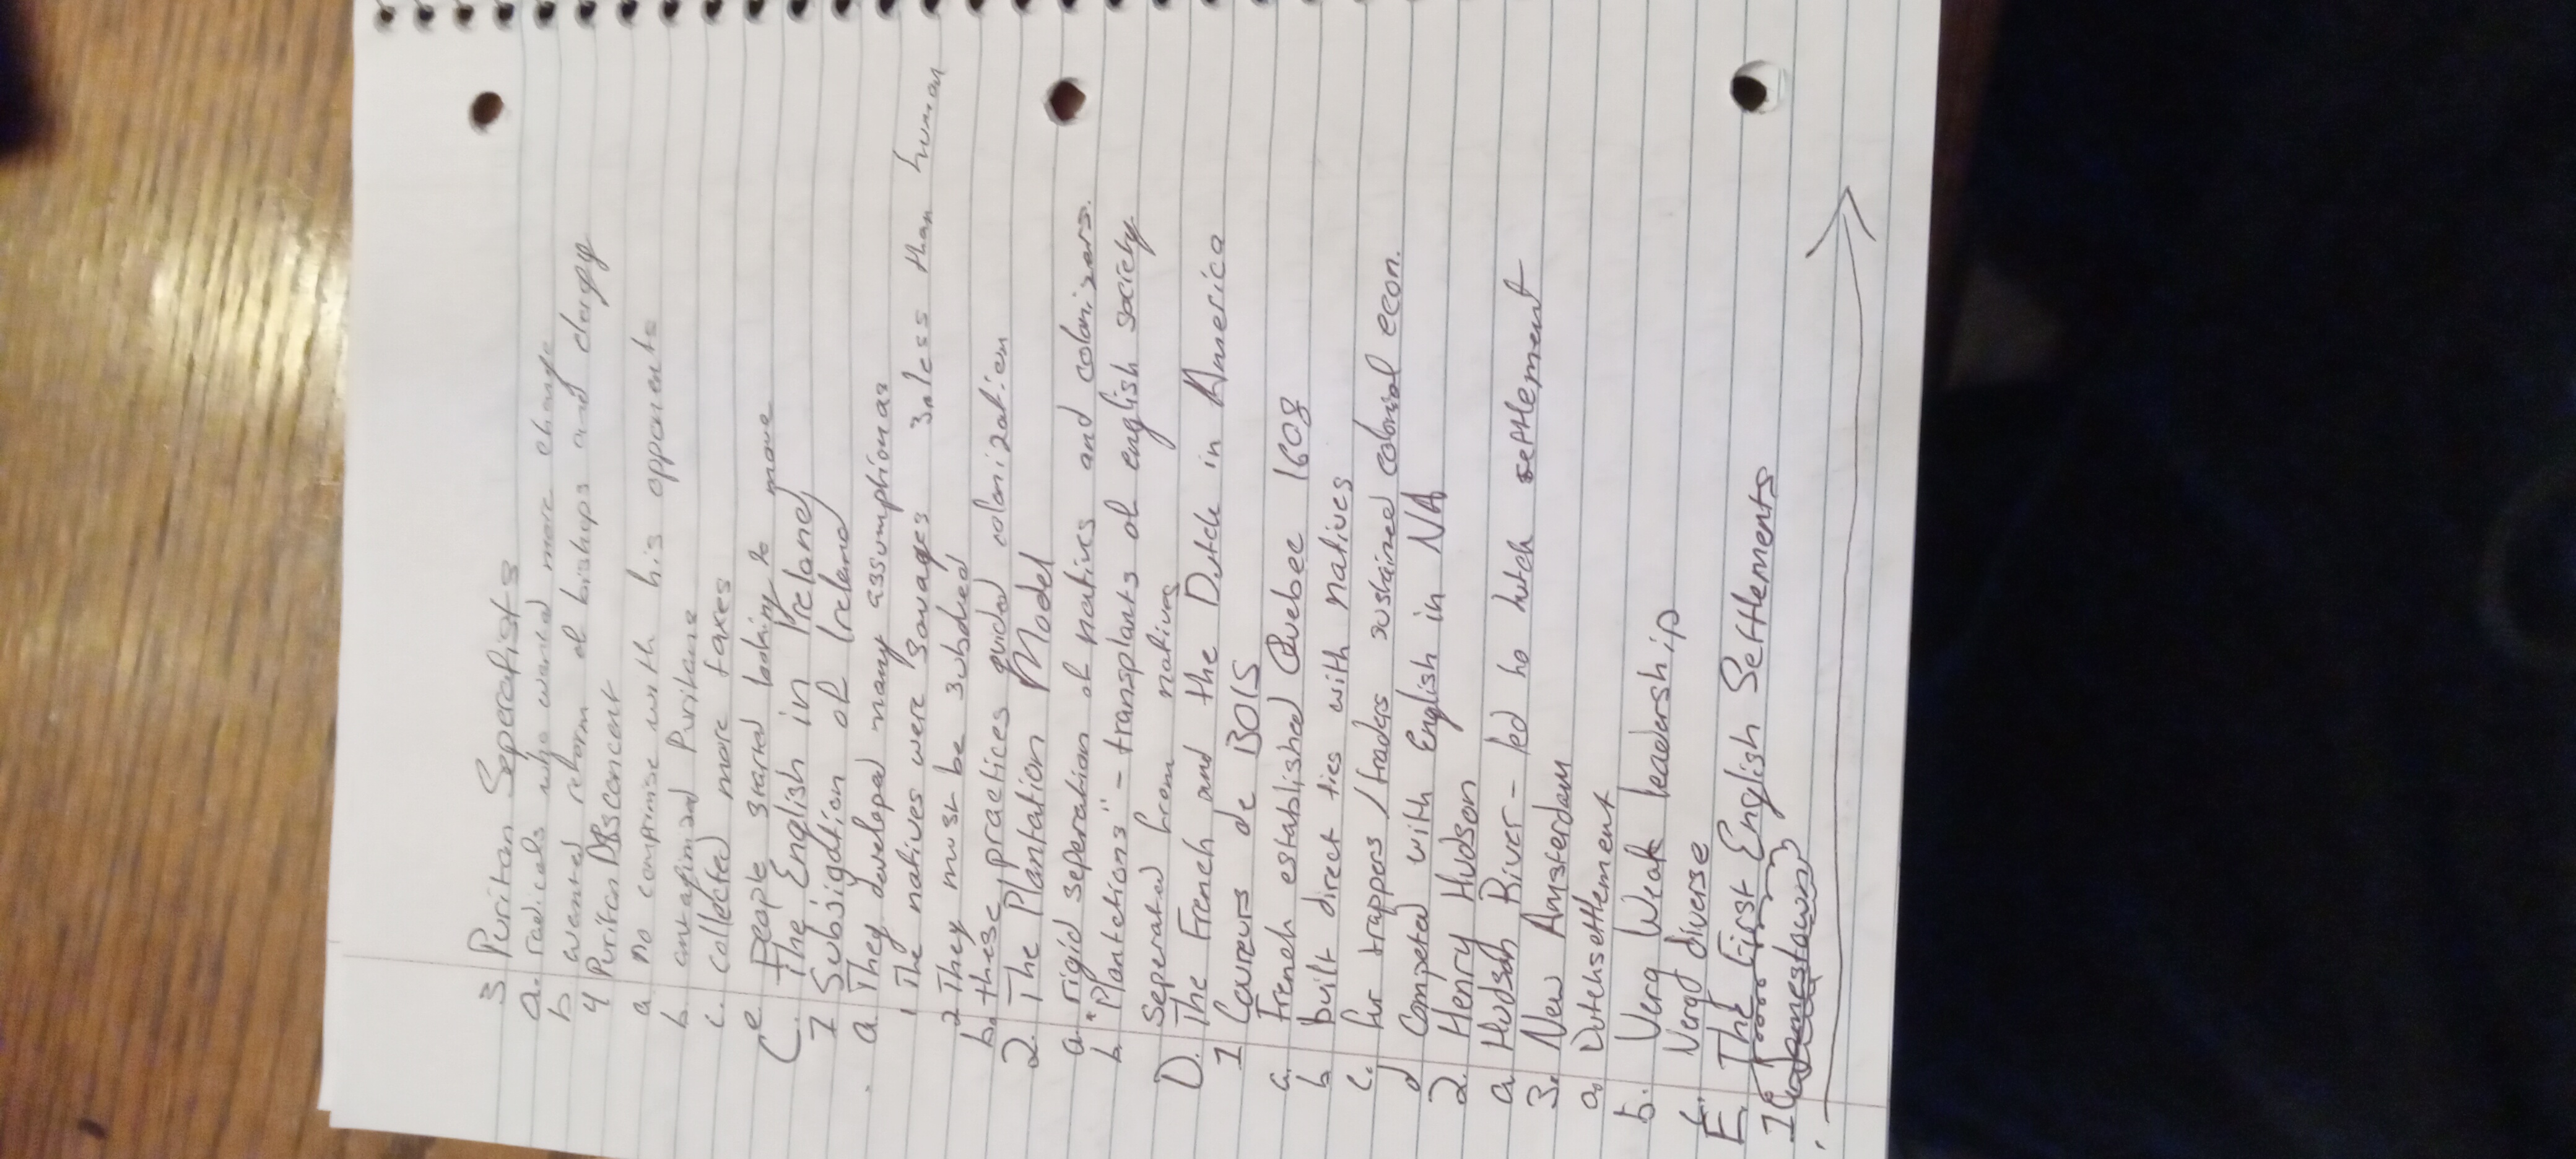 3 Puritan Seperatists
a. radicals who wanted more change
b wanted reform of bishops and clergy
4 Puritan Disconcent
a. no compromise with his opponents
b. antagonized Puritans
c. collected more taxes
e. People started looking to move
C. The English in Ireland
1 Subsigation of Ireland
a. They developed many assumptions
1 The natives were savages 3. less than human
2 They must be subdued
b. these practices guided colonization
2. The Plantation Model
a. rigid seperation of natives and colonizers.
b. "Plantations" - transplants of english society
Seperated from natives
D. The French and the Dutch in America
1 Coureurs de BOIS
a. French established Quebec 1608
b built direct ties with natives
c. fur trappers / traders sustained colonial econ.
d Competed with English in NA
2. Henry Hudson
a. Hudson River - led to dutch settlement
3. New Amsterdam
a. Dutch settlement
b. Very Weak leadership
c. Very diverse
E. The First English Settlements
1 Jamestown